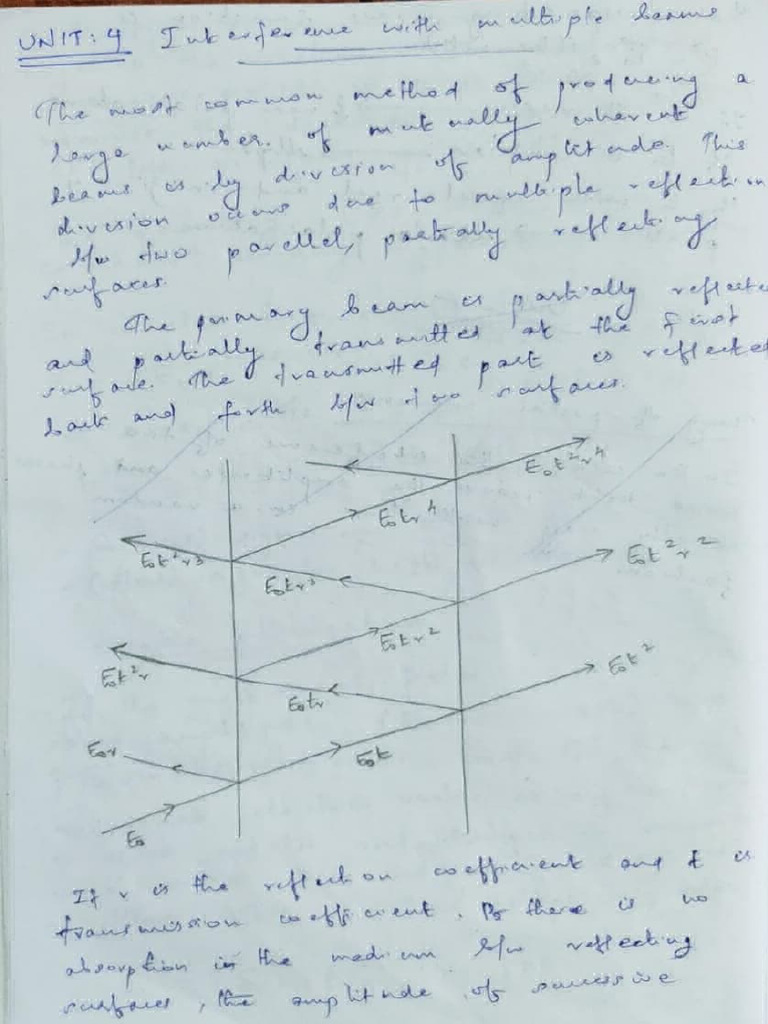 UNIT: 4 Interference with multiple beams
The most common method of producing a
large number. of mutually coherent
beams is by division of amplitude. This
division occurs due to multiple reflection
b/w two parallel, partially reflecting
surfaces.
The primary beam is partially reflecte
and partially transmitted at the first
surface. The transmitted part is reflected
back and forth b/w two surfaces.
E₀t²r⁴
E₀tr⁴
E₀t²r³
E₀tr³
E₀t²r²
E₀tr²
E₀t²r
E₀tr
E₀t²
E₀r
E₀t
E₀
If r is the reflection coefficient and t is
transmission coefficient. If there is no
absorption in the medium b/w reflecting
surfaces, the amplitude of successive